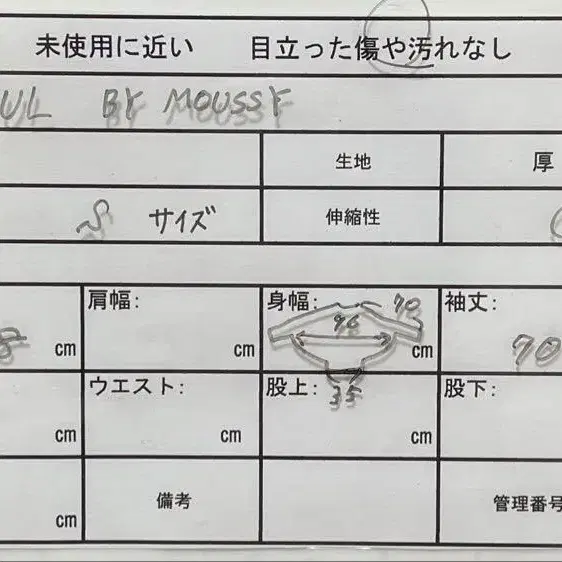 未使用に近い 目立った傷や汚れなし
UL BY MOUSSY
生地 厚
S サイズ 伸縮性
肩幅: 身幅: 70 袖丈:
96
8 cm cm cm 70
ウエスト: 股上: 35 股下:
cm cm cm
備考 管理番号
cm